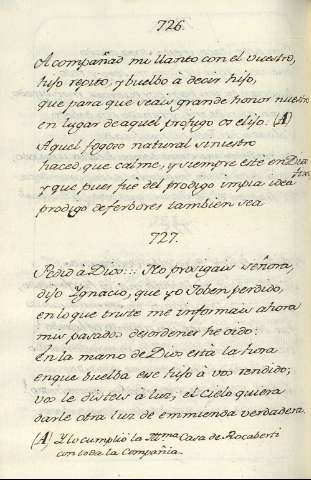 726.
Acompañad mi llanto con el vuestro,
hijo repito, y buelbo à decir hijo,
que para que seais grande honor nuestro
en lugar de aquel profugo os elijo. (A)
Aquel fogoso natural siniestro
haced, que calme, y siempre esté en Dios fixo
y que pues fue del prodigo impia idea
prodigo de ferbores tambien sea
727.
Pedid à Dios... No prosigais señora,
dijo Ygnacio, que yo Joben perdido,
en lo que triste me informais ahora
mis pasados desordenes he oido:
En la mano de Dios està la hora
en que buelba ese hijo à vos rendido;
vos le disteis à luz; el cielo quiera
darle otra luz de emmienda verdadera.
(A) Y lo cumpliò la Ill.ma Casa de Rocaberti
con toda la Compañia.